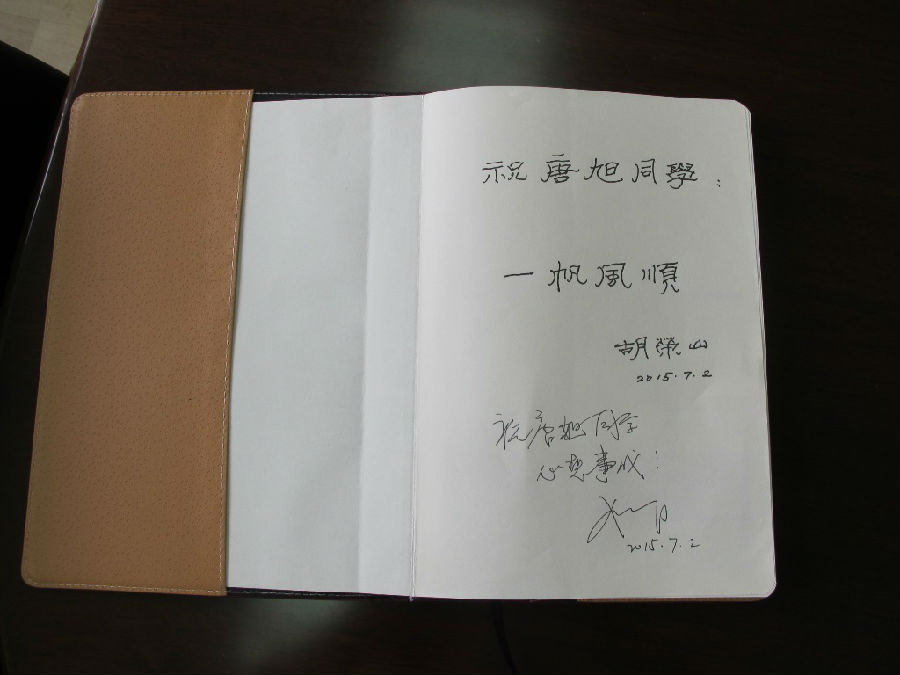 祝唐旭同學：
一帆風順
胡榮山
2015.7.2
祝唐旭同学
心想事成：
2015.7.2